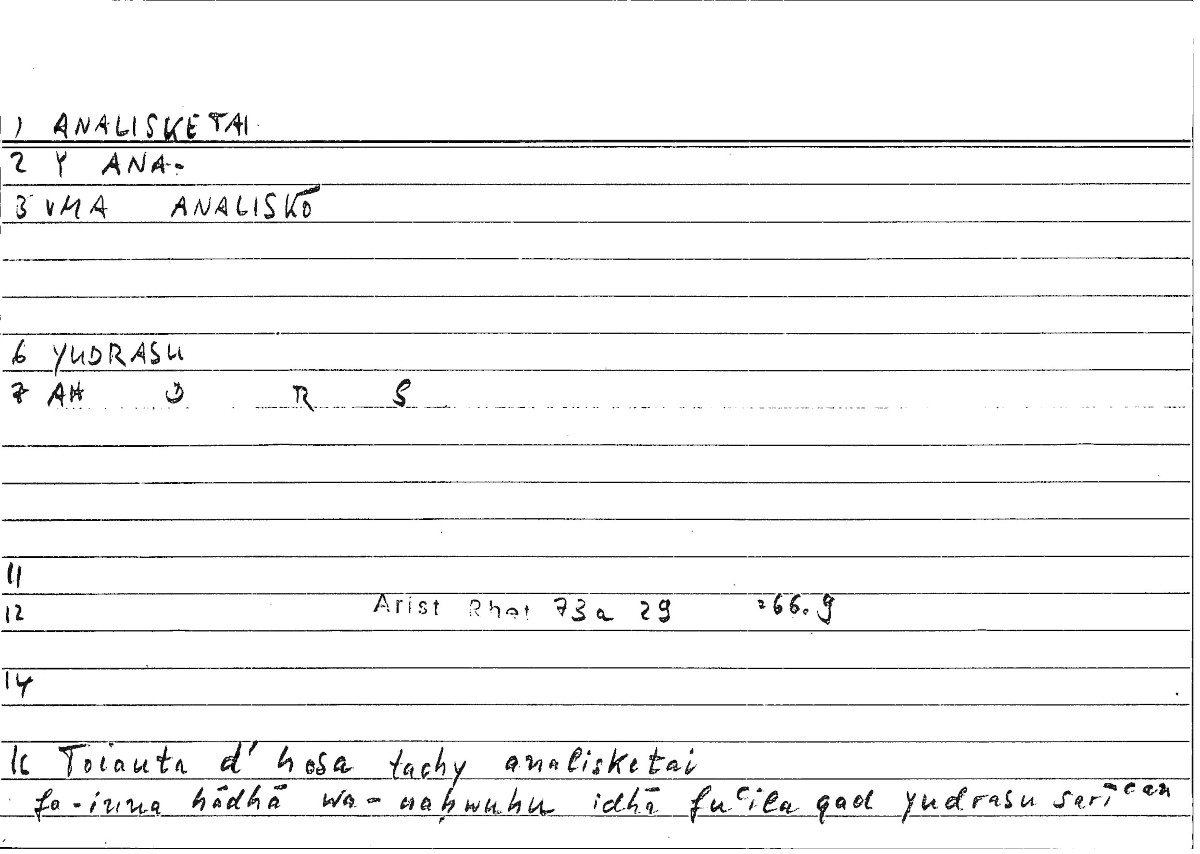 1) ANALISKETAI
2 Y ANA-
3 VMA ANALISKŌ
6 YUDRASU
7 AH D R S
11
12 Arist Rhet 73a 29 266.9
14
16 Toiauta d' hosa tachy analisketai
fa-inna hādhā wa-naḥwuhu idhā fuʿila qad yudrasu sarīʿan